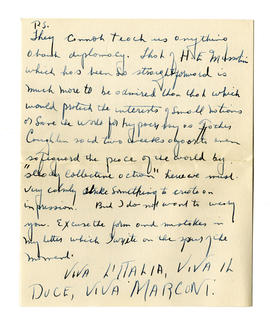 P.S.
They cannot teach us anything
about diplomacy. That of H.E. Mussolini
which has been so straightforward is
much more to be admired than that which
would protect the interests of small nations
or save the world for hypocrisy as Father
Coughlin said two weeks ago or even
safeguard the peace of the world by
"steady collective action" here we must
very calmly make something to create an
impression. But I do not want to weary
you. Excuse the form and mistakes in
my letter which I write on the spur of the
moment.
VIVA L'ITALIA, VIVA IL
DUCE, VIVA MARCONI.